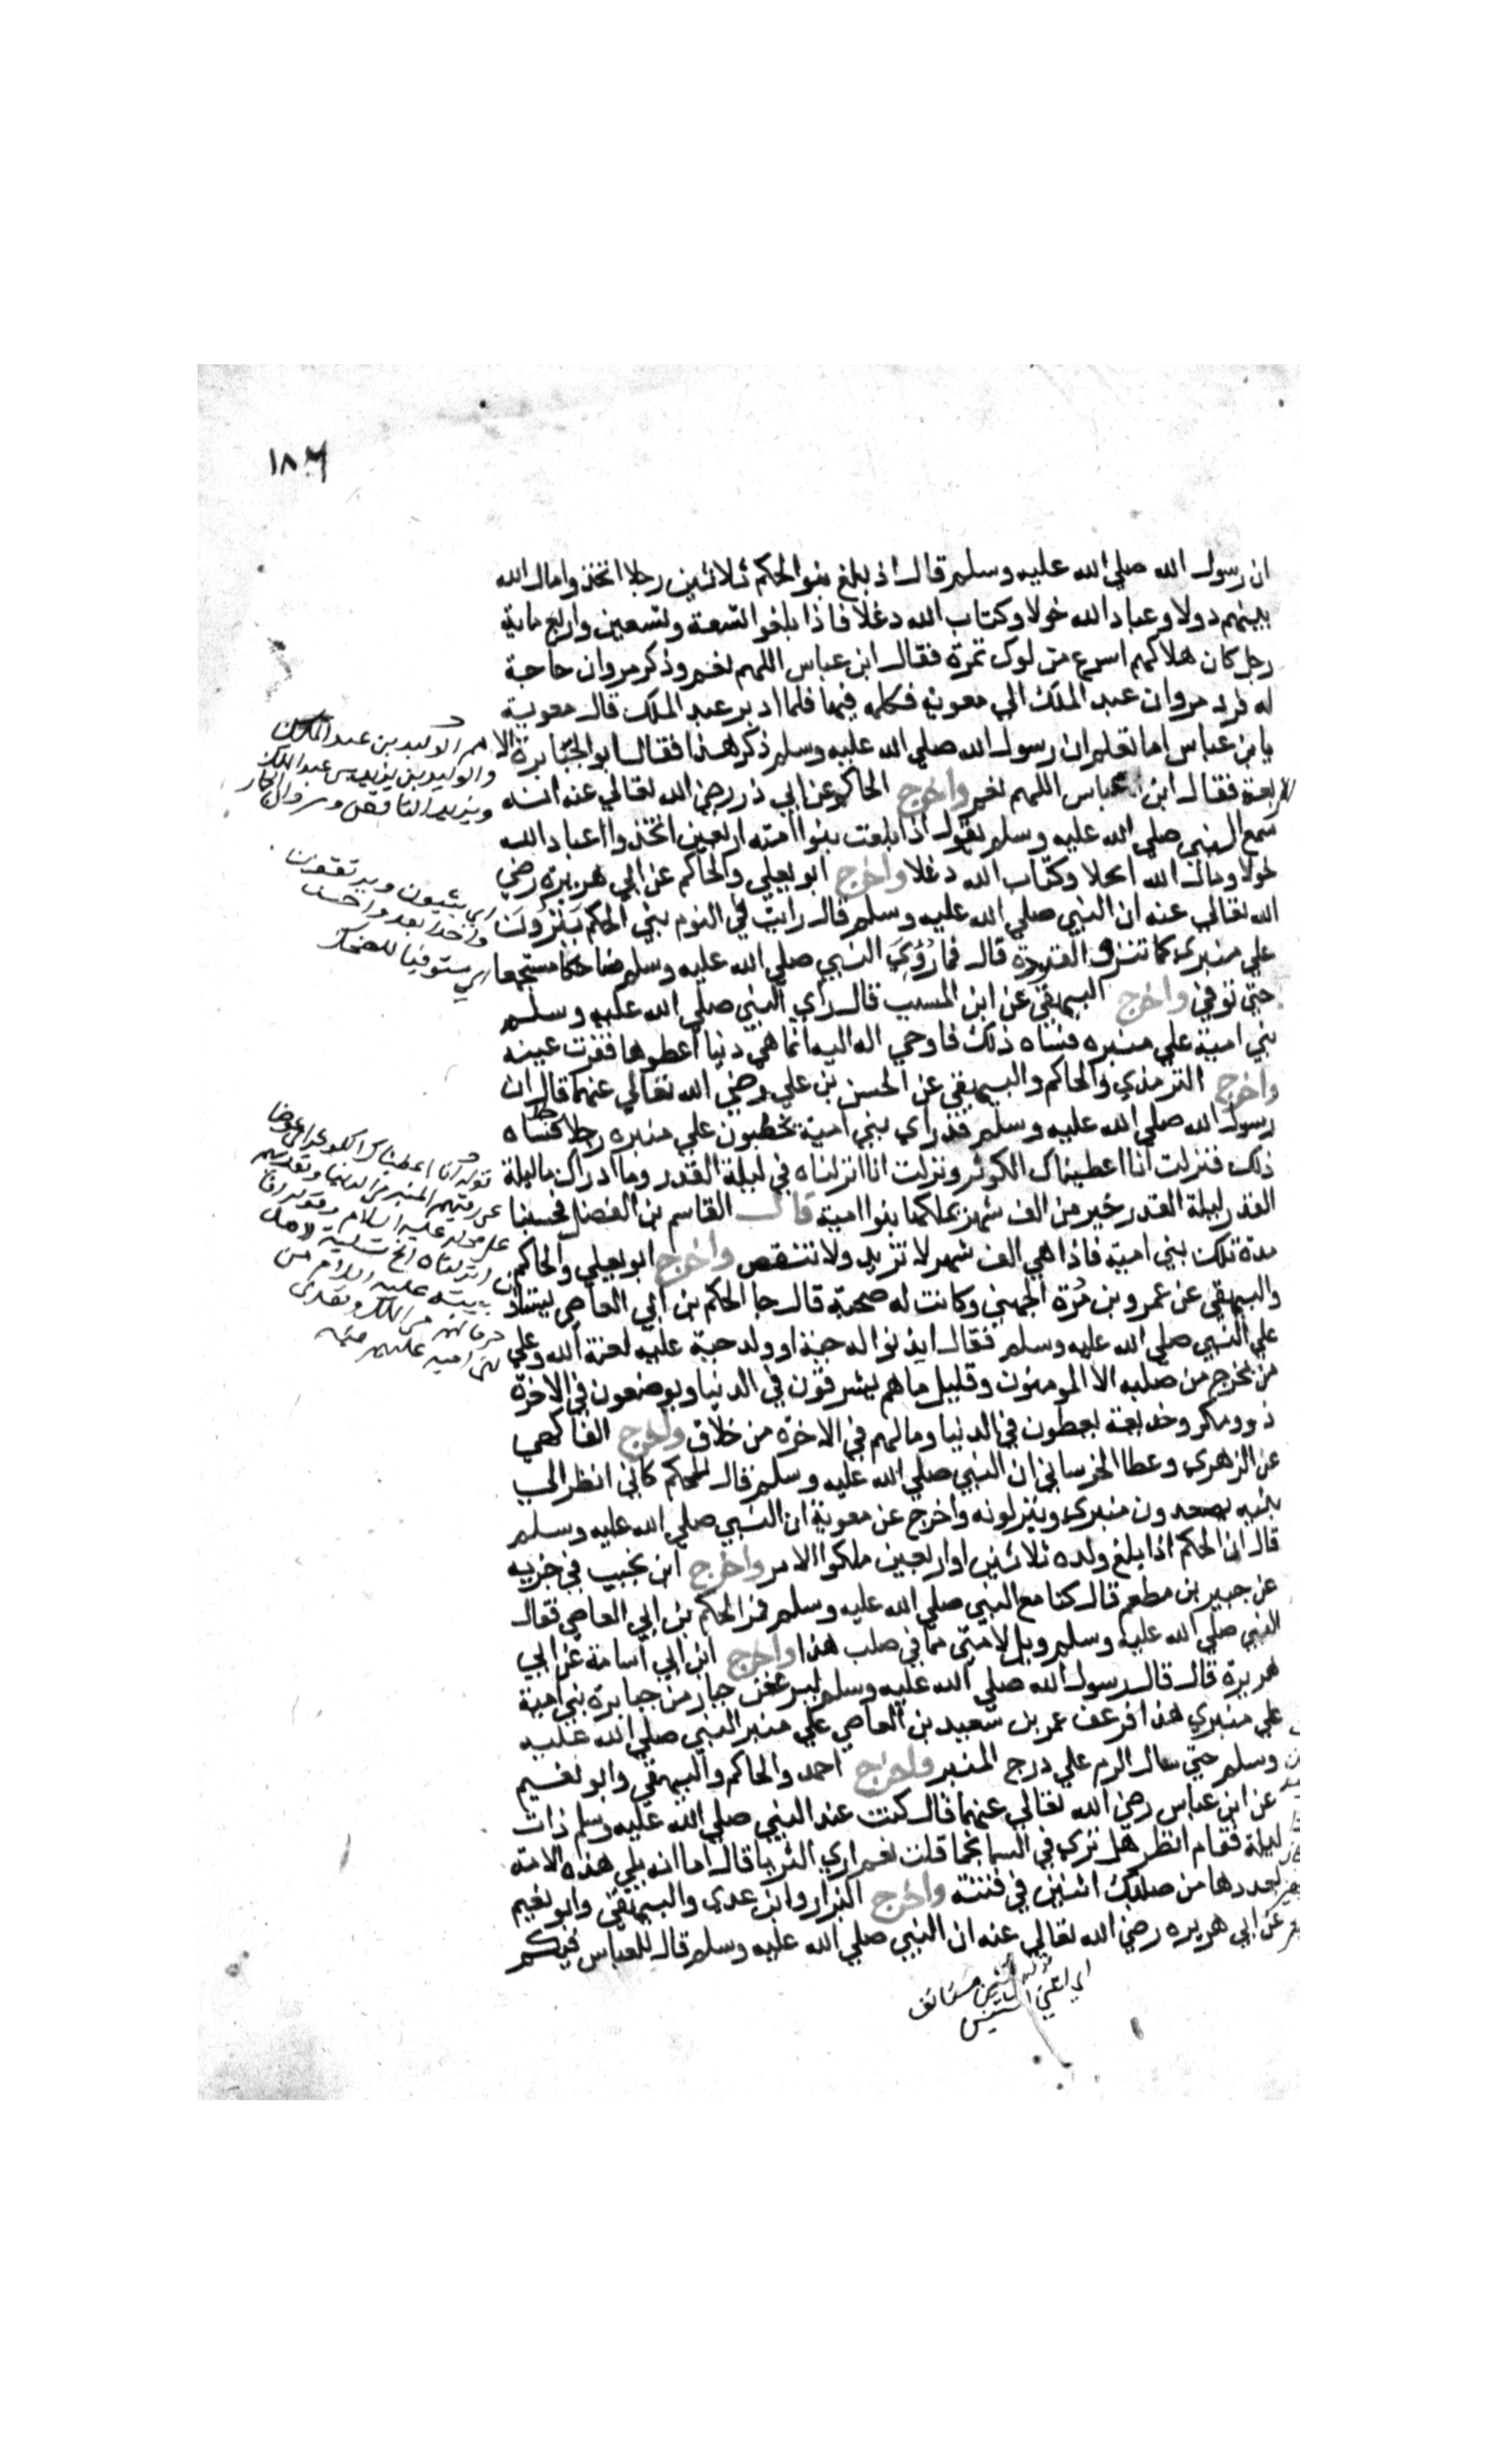 ١٨٦
ان رسول الله صلي الله عليه وسلم قال اذ بلغ بنو الحكم ثلاثين رجلا اتخذوا مال الله
بينهم دولا وعباد الله خولا وكتاب الله دغلا فاذا بلغوا تسعة وتسعين واربع ماية
رجل كان هلاكهم اسرع من لوك تمرة فقال ابن عباس اللهم نعم وذكر مروان حاجة
له فرد مروان عبد الملك الي معوية فكلمه فيها فلما ادبر عبد الملك قال معوية
يا بن عباس اما تعلم ان رسول الله صلي الله عليه وسلم ذكر هذا فقال ابو الجبابرة الا
لاربعة فقال ابن عباس اللهم نعم واخرج الحاكم عن ابي ذر رضي الله تعالي عنه انه
سمع النبي صلي الله عليه وسلم يقول اذا بلغت بنوا امته اربعين اتخذوا اعباد الله
خولا ومال الله نحلا وكتاب الله دغلا واخرج ابو يعلي والحاكم عن ابي هريرة رضي
الله تعالي عنه ان النبي صلي الله عليه وسلم قال رايت في النوم بني الحكم ينزون
علي منبري كما تنزو القردة قال فما رؤي النبي صلي الله عليه وسلم ضاحكا مستجمعا
حتي توفي واخرج البيهقي عن ابن المسيب قال راي النبي صلي الله عليه وسلم
بني امية علي منبره فساه ذلك فاوحي اله اليه انما هي دنيا اعطوها فقرت عينه
واخرج الترمذي والحاكم والبيهقي عن الحسن بن علي رضي الله تعالي عنهما قال ان
رسول الله صلي الله عليه وسلم قد راي بني امية يخطبون علي منبره رجلا فساه
ذلك فنزلت انا اعطيناك الكوثر ونزلت انا انزلناه في ليلة القدر وما ادراك ما ليلة
القدر ليلة القدر خير من الف شهر يملكها بنوا امية قال القاسم بن الفضل فحسبنا
مدة تلك بني امية فاذا هي الف شهر لا تزيد ولا تنقص واخرج ابو يعلي والحاكم
والبيهقي عن عمرو بن مرة الجهني وكانت له صحبة قال جا الحكم بن ابي العاصي يستاذن
علي النبي صلي الله عليه وسلم فقال ايذنوا له حية او ولد حية عليه لعنة الله وعلي
من يخرج من صلبه الا المومنون وقليل ما هم يشرفون في الدنيا ويوضعون في الاخرة
ذوو مكر وخديعة يعطون في الدنيا ومالهم في الاخرة من خلاق واخرج الفاكهي
عن الزهري وعطا الخرساني ان النبي صلي الله عليه وسلم قال للحكم كاني انظر الي
بنيه يصعدون منبري وينزلونه واخرج عن معوية ان النبي صلي الله عليه وسلم
قال ان الحكم اذا بلغ ولده ثلاثين او اربعين ملكوا الامر واخرج ابن نجيب في جزيه
عن جبير بن مطعم قال كنا مع النبي صلي الله عليه وسلم فمر الحكم بن ابي العاصي فقال
النبي صلي الله عليه وسلم ويل لامتي مما في صلب هذا واخرج ابن ابي اسامة عن ابي
هريرة قال قال رسول الله صلي الله عليه وسلم ليرعفن جبار من جبابرة بني امية
علي منبري هذا فرعف عمر بن سعيد بن العاصي علي منبر النبي صلي الله عليه
وسلم حتي سال الدم علي درج المنبر واخرج احمد والحاكم والبيهقي وابو نعيم
عن ابن عباس رضي الله تعالي عنهما قال كنت عند النبي صلي الله عليه وسلم ذات
ليلة فقام انظر هل تري في السما نجما قلت نعم اري الثريا قال اما انه يلي هذه الامة
بعددها من صلبك اثنين في فتنة واخرج البزار وابن عدي والبيهقي وابو نعيم
عن ابي هريره رضي الله تعالي عنه ان النبي صلي الله عليه وسلم قال للعباس فيكم
هم الوليد بن عبد الملك
والوليد بن يزيد بن عبد الملك
ويزيد الناقص ومروان الحمار
اي يثبون ويرتقون
واحدا بعد واحد
اي مستوفيا للضحك
قوله انا اعطيناك الكوثر اي عوضا
عن رقيهم المنبر في الدنيا
عليه السلام
انزلناه الخ تسلية
عليه السلام من
الملك
بني امية عليهم